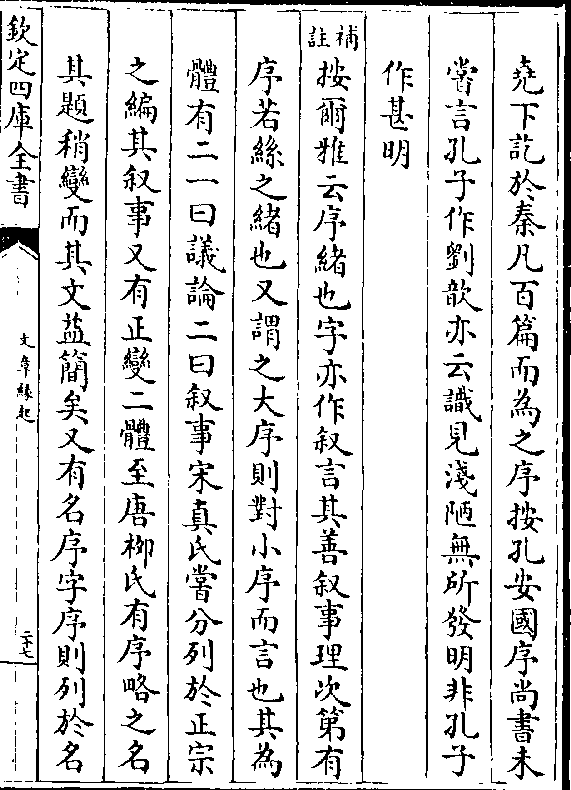 堯下訖於秦凡百篇而為之序按孔安國序尚書未
嘗言孔子作劉歆亦云識見淺陋無所發明非孔子
作甚明
補註
按爾雅云序緒也字亦作叙言其善叙事理次第有
序若絲之緒也又謂之大序則對小序而言也其為
體有二一曰議論二曰叙事宋真氏嘗分列於正宗
之編其叙事又有正變二體至唐栁氏有序略之名
其題稍變而其文益簡矣又有名序字序則列於名
欽定四庫全書
文章緣起
二十七